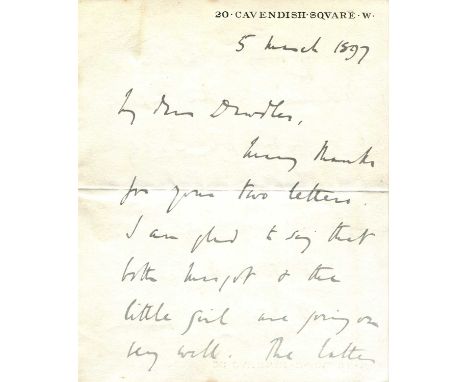 20·CAVENDISH·SQVARE·W·
5 March 1897
My dear
Many thanks
for your two letters.
I am glad to say that
both Margot & the
little girl are going on
very well. The latter